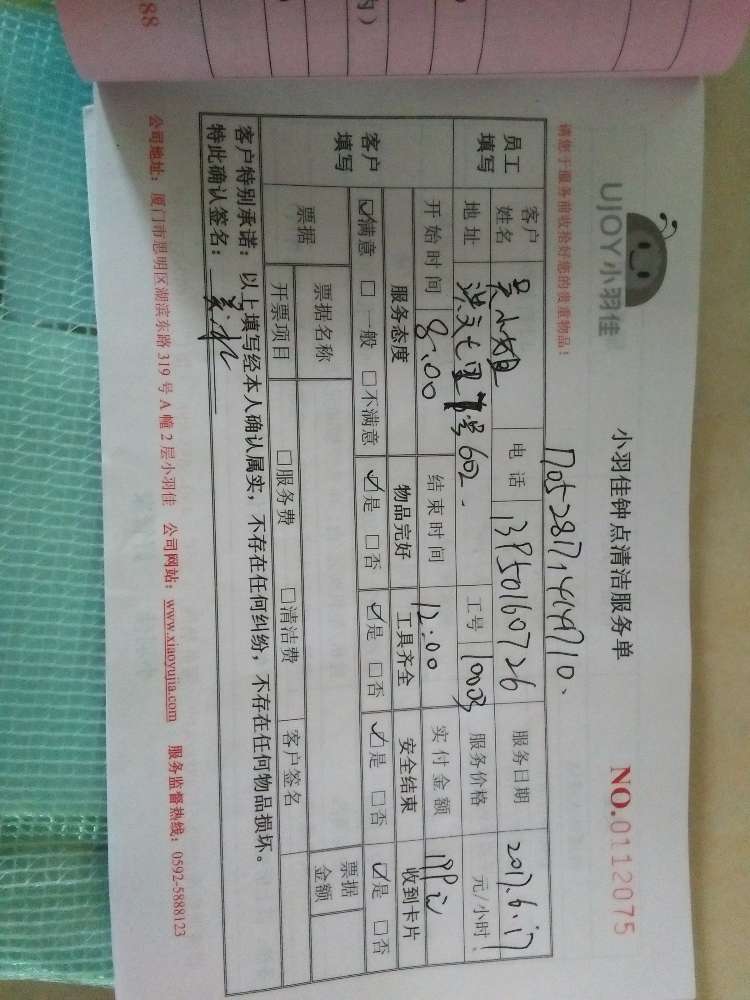 88
内）
UJOY小羽佳
小羽佳钟点清洁服务单
NO.0112075
请您于服务前收拾好您的贵重物品！
员工填写
客户姓名 吴小姐 电话 13950160726 服务日期 2017.6.17
地址 洪文七里 602 工号 10003 服务价格 元/小时
开始时间 8:00 结束时间 12:00 实付金额
客户填写
服务态度 物品完好 工具齐全 安全结束 收到卡片
☑满意 □一般 □不满意 ☑是 □否 ☑是 □否 ☑是 □否 ☑是 □否
票据 票据名称 票据金额
开票项目 □服务费 □清洁费 客户签名
客户特别承诺：以上填写经本人确认属实，不存在任何纠纷，不存在任何物品损坏。
特此确认签名：
公司地址：厦门市思明区湖滨东路 319 号 A 幢 2 层小羽佳 公司网站：www.xiaoyujia.com 服务监督热线：0592-5888123